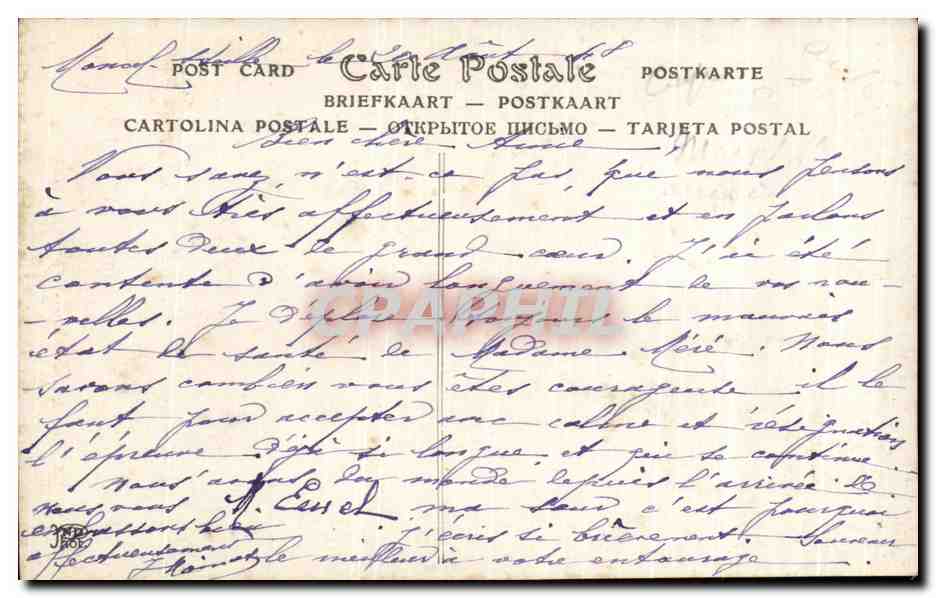 le 20 Août 48
POST CARD Carte Postale POSTKARTE
BRIEFKAART — POSTKAART
CARTOLINA POSTALE — ОТКРЫТОЕ ПИСЬМО — TARJETA POSTAL
Bien chère Amie,
Vous savez, n'est-ce pas, que nous pensons
à vous très affectueusement et en parlons
toutes deux de grand cœur. J'ai été
contente d'avoir longuement de vos nou-
-velles. Je déplore toujours le mauvais
état de santé de Madame Méré. Nous
savons combien vous êtes courageuse il le
faut pour accepter avec calme et résignation
l'épreuve déjà si longue et qui se continue.
Nous avons du monde depuis l'arrivée de
ma sœur c'est pourquoi
j'écris si brièvement. Souvenir
le meilleur à votre entourage
Nous vous
embrassons bien
affectueusement
CPAPHIL
ND
PHOT